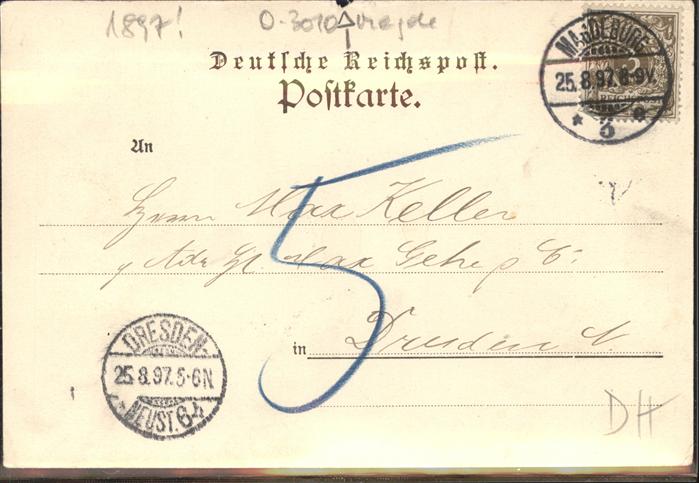 1897! O-3010
Deutsche Reichspost.
Postkarte.
MAGDEBURG
25.8.97.8-9V.
* 5 e
3
An
Herrn Max Keller
Max Gehe
5
in Dresden N.
DRESDEN-
25.8.97.5-6N
NEUST.6
DH